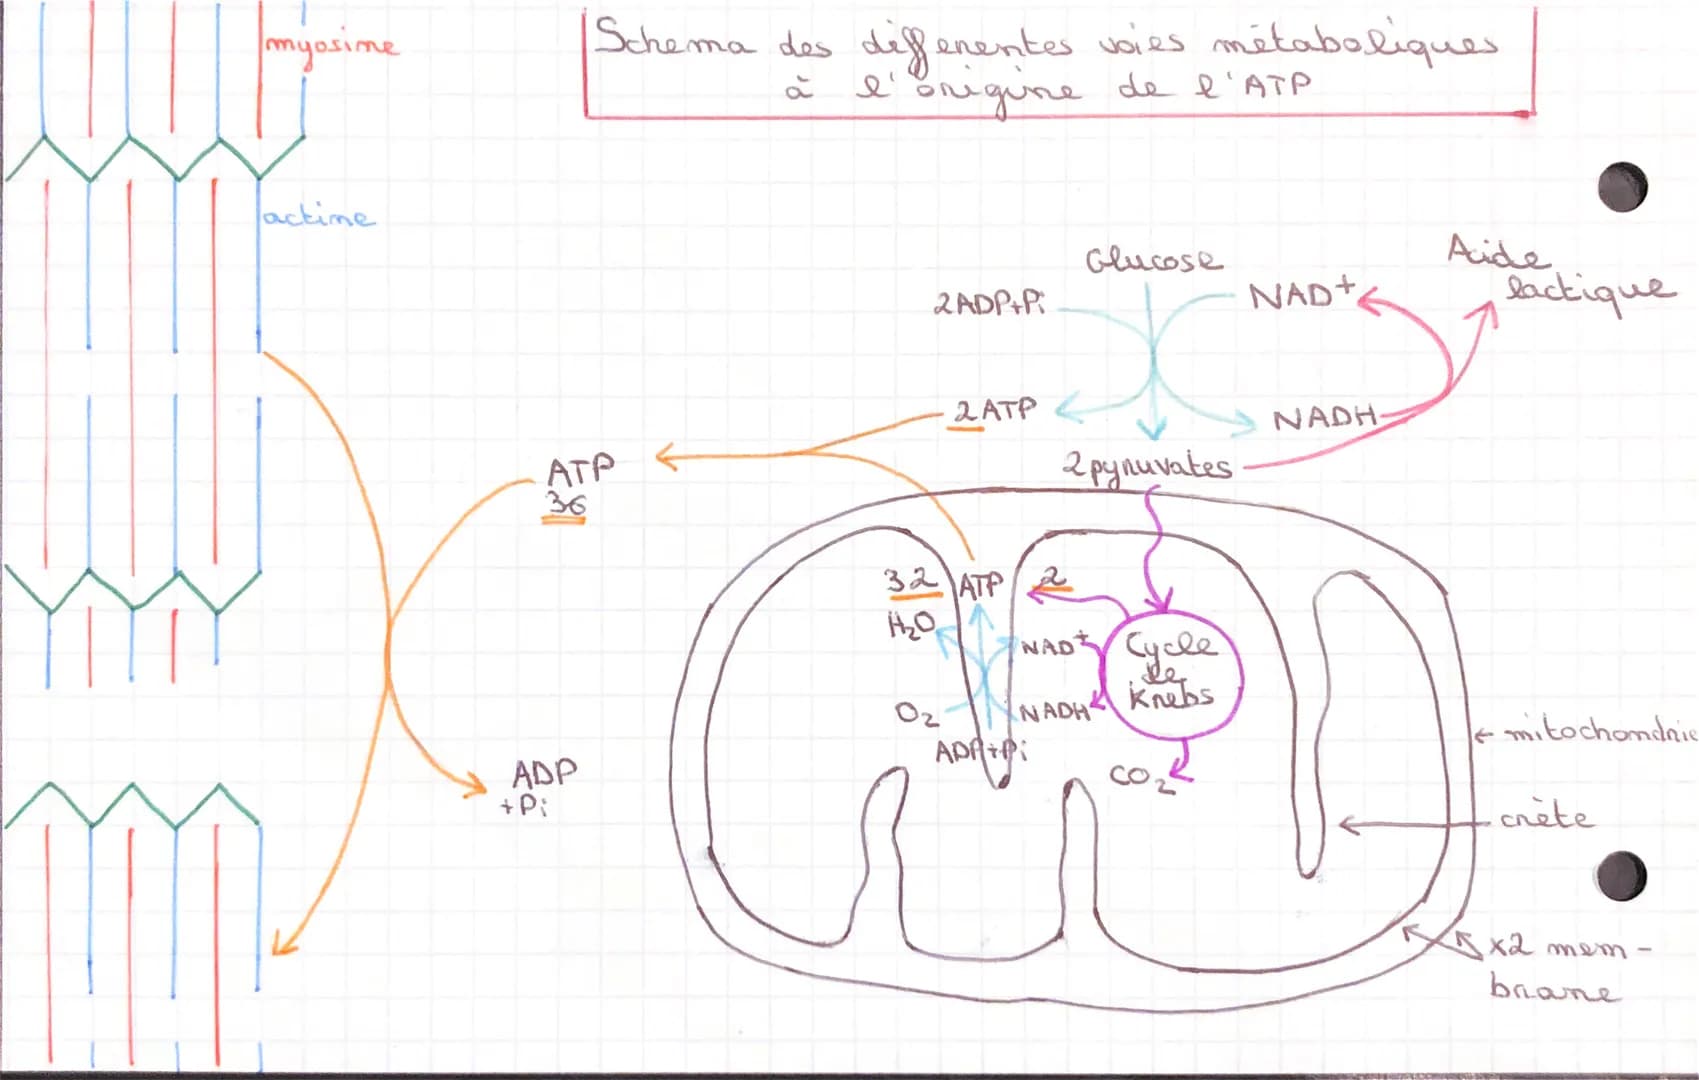 Schema des differentes voies métaboliques
à l'origine de l'ATP
myosine
actine
Glucose
2ADP+Pi
NAD+
Acide
lactique
2ATP
NADH
2pyruvates
ATP
36
32
ATP
2
H2O
NAD+
Cycle
de
Krebs
O2
NADH
ADP+Pi
CO2
ADP
+Pi
mitochondrie
crète
x2 mem-
brane